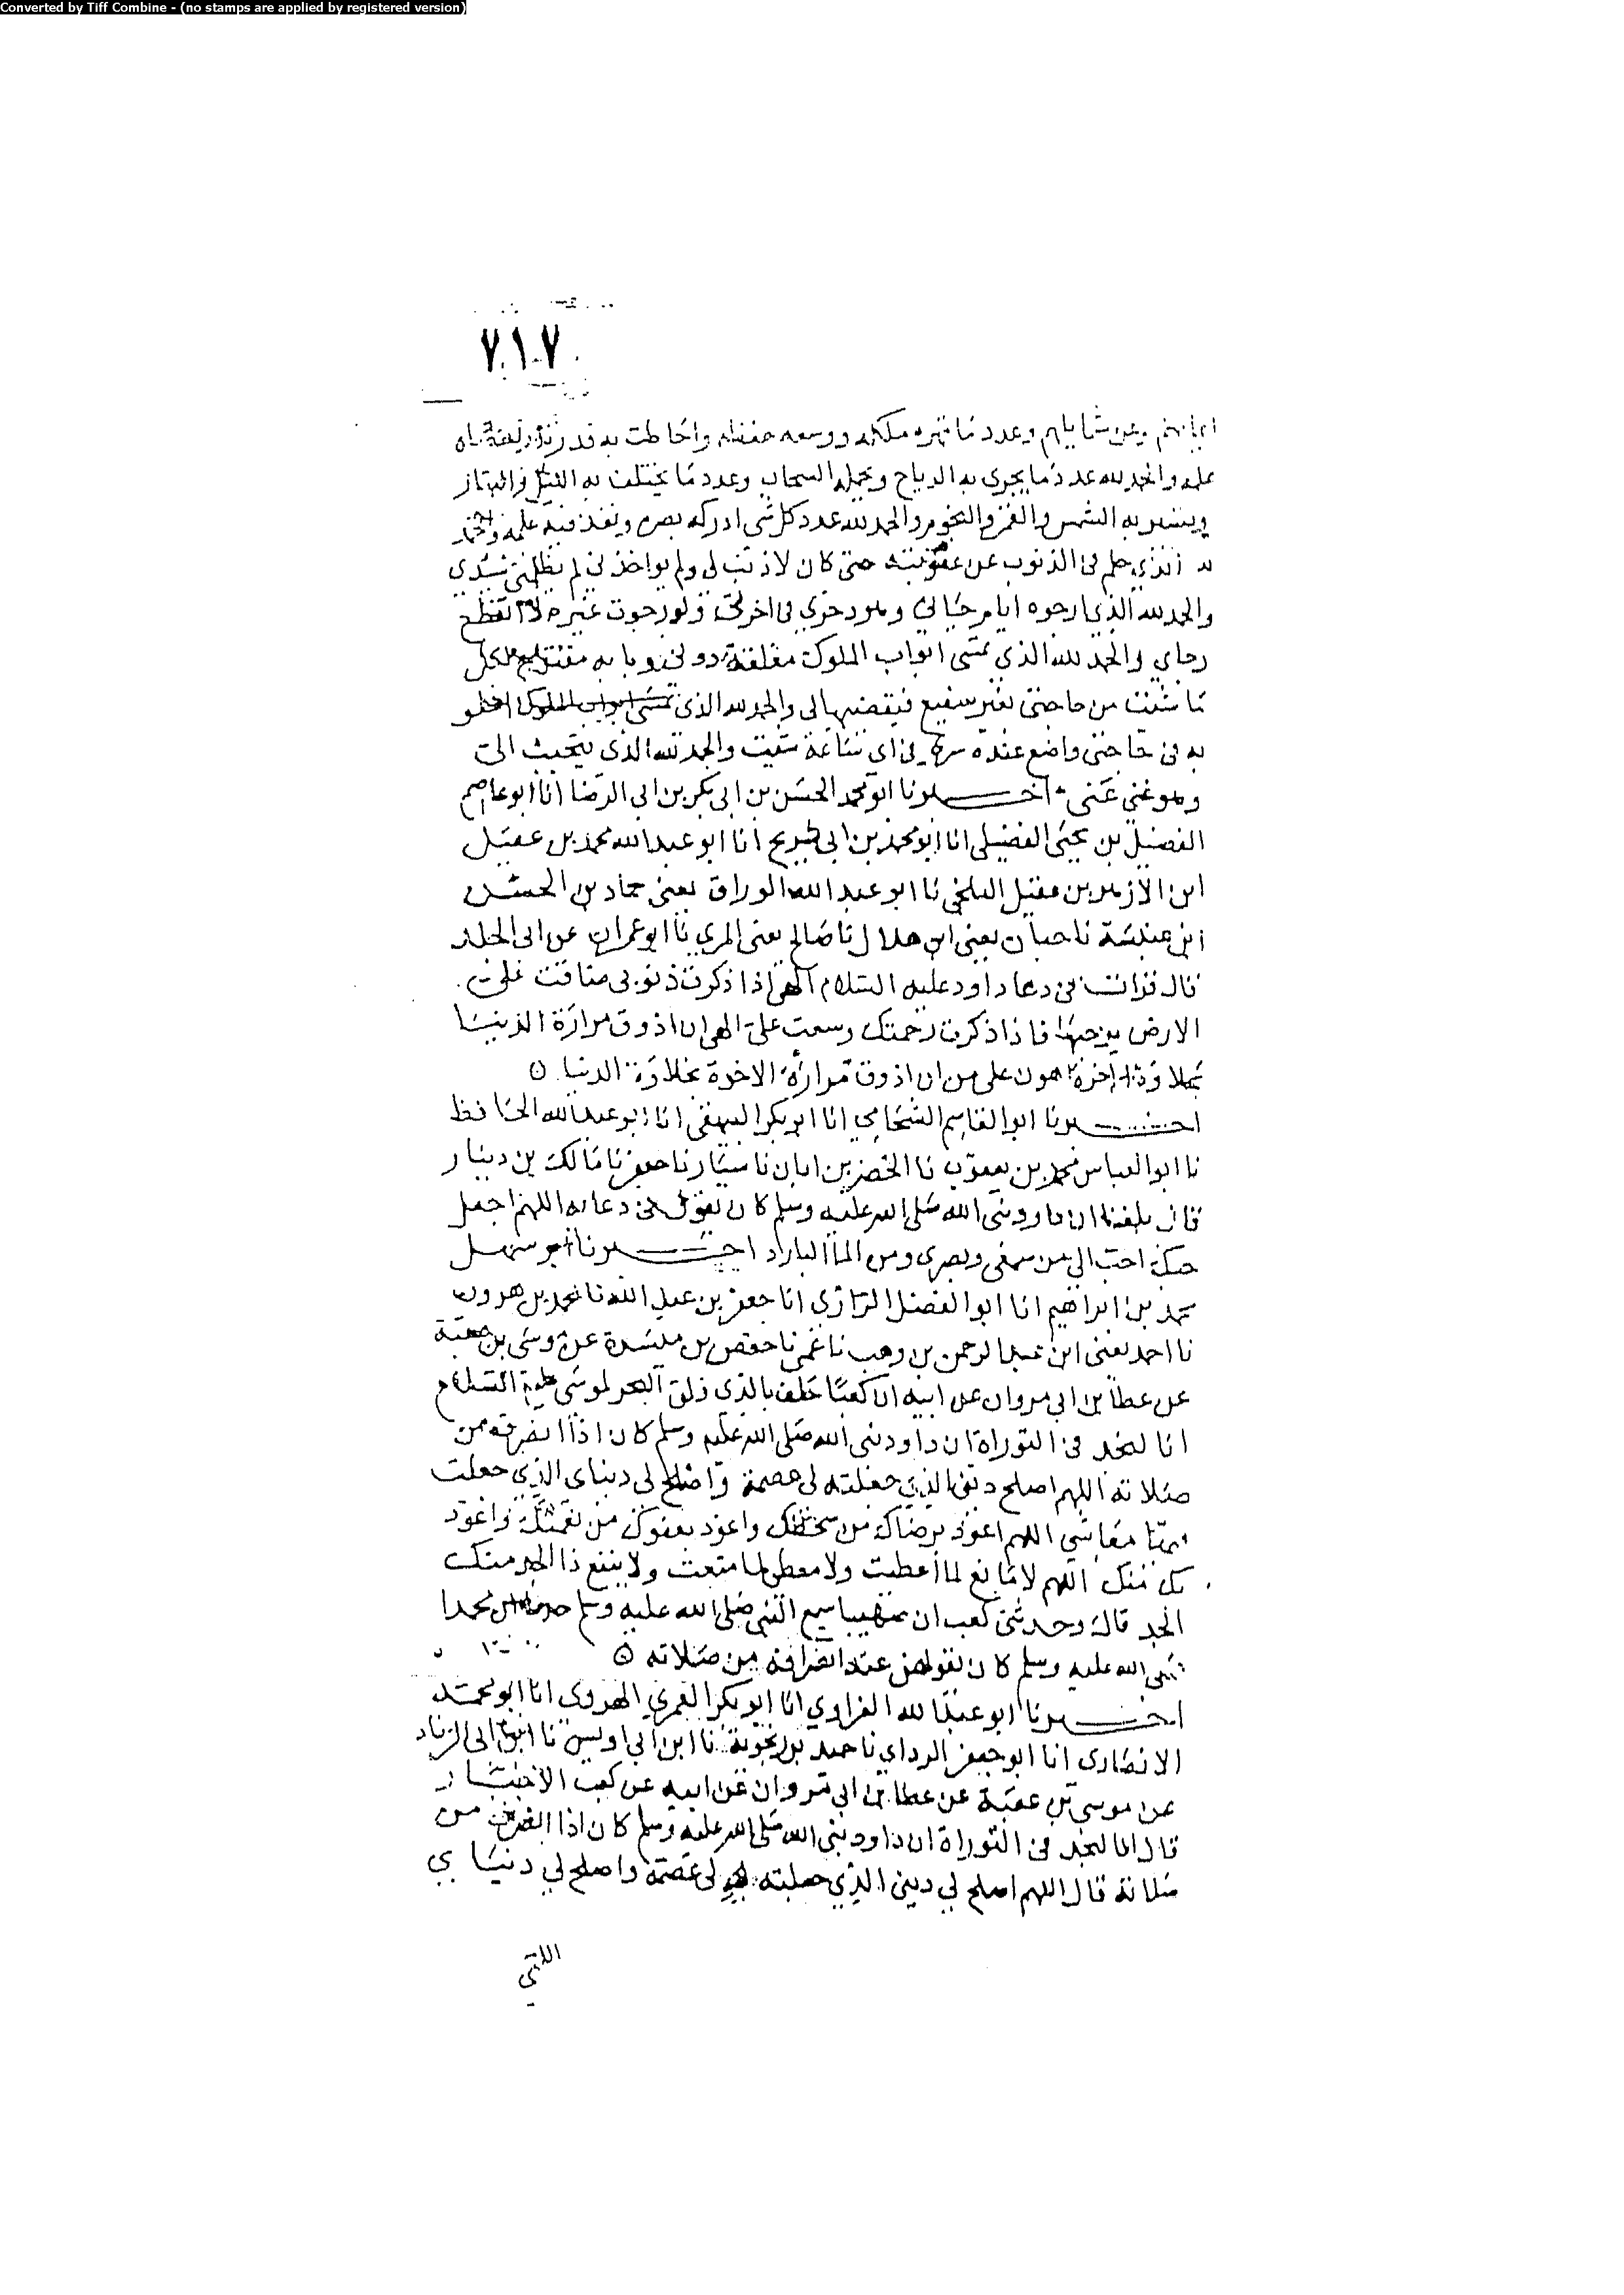 Converted by Tiff Combine - (no stamps are applied by registered version)
٧١٧
ايمانهم وعن شمايلهم وعدد ما قهره ملكه ووسعه حفظه واحاطت به قدرته
علمه والحمد لله عدد ما يجري به الرياح وتحمله السحاب وعدد ما يختلف به الليل والنهار
ويسير به الشمس والقمر والنجوم والحمد لله عدد كل شي ادركه بصره ونفذ فيه علمه والحمد
لله الذي حلم في الذنوب عن عقوبته حتى كان لا ذنب لي ولم يواخذني لم يظلمني سيدي
والحمد لله الذي ارجوه ايام حياتي وهو دخري في اخرتي ولو رجوت غيره لا انقطع
رجاي والحمد لله الذي تمسى ابواب الملوك مغلقة دوني وبابه مفتوح لكل
ما شئت من حاجتي بغير شفيع فيقضيها لي والحمد لله الذي تمسى ابواب الملوك اخلو
به في حاجتي واضع عنده سري في اي ساعة شيت والحمد لله الذي يتحبب الي
وهو غني عني اخبرنا ابو محمد الحسن بن ابي بكر بن ابي الرضا انا ابو عاصم
الفضيل بن يحيى الفضيلي انا ابو محمد بن ابي شريح انا ابو عبد الله محمد بن عقيل
ابن الازهر بن عقيل البلخي نا ابو عبد الله الوراق يعني حماد بن الحسن
ابن عنبسة نا حبان يعني ابن هلال نا صالح يعني المري نا ابو عمران عن ابي الجلد
قال قرات في دعا داود عليه السلام الهي اذا ذكرت ذنوبي ضاقت علي
الارض برحبها فاذا ذكرت رحمتك وسعت علي الهي ان اذوق مرارة الدنيا
بحلاوة الاخرة اهون علي من ان اذوق مرارة الاخرة بحلاوة الدنيا ه
اخبرنا ابو القاسم الشحامي انا ابو بكر البيهقي انا ابو عبد الله الحافظ
نا ابو العباس محمد بن يعقوب نا الخضر بن ابان نا سيار نا جعفر نا مالك بن دينار
قال بلغنا ان داود نبي الله صلى الله عليه وسلم كان يقول في دعائه اللهم اجعل
حبك احب الي من سمعي وبصري ومن الما البارد اخبرنا ابو سهل
محمد بن ابراهيم انا ابو الفضل الرازي انا جعفر بن عبد الله نا محمد بن هرون
نا احمد يعني ابن عبد الرحمن بن وهب نا عمي نا حفص بن ميسرة عن موسى بن عقبة
عن عطا بن ابي مروان عن ابيه ان كعبا حلف بالذي فلق البحر لموسى عليه السلام
انا لنجد في التوراة ان داود نبي الله صلى الله عليه وسلم كان اذا انصرف من
صلاته اللهم اصلح ديني الذي جعلته لي عصمة واصلح لي دنياي الذي جعلت
فيها معاشي اللهم اعوذ برضاك من سخطك واعوذ بعفوك من نقمتك واعوذ
بك منك اللهم لا مانع لما اعطيت ولا معطي لما منعت ولا ينفع ذا الجد منك
الجد قال وحدثني كعب ان صهيبا سمع النبي صلى الله عليه وسلم حدثه ان محمدا
صلى الله عليه وسلم كان يقولهن عند انصرافه من صلاته ه
اخبرنا ابو عبد الله الفراوي انا ابو بكر العمري الهروي انا ابو محمد
الانصاري انا ابو جعفر الرداي نا حميد بن زنجوية نا ابن ابي اويس نا ابن ابي الزناد
عن موسى بن عقبة عن عطا بن ابي مروان عن ابيه عن كعب الاحبار
قال انا لنجد في التوراة ان داود نبي الله صلى الله عليه وسلم كان اذا انصرف من
صلاته قال اللهم اصلح لي ديني الذي جعلته لي عصمة واصلح لي دنياي
التي